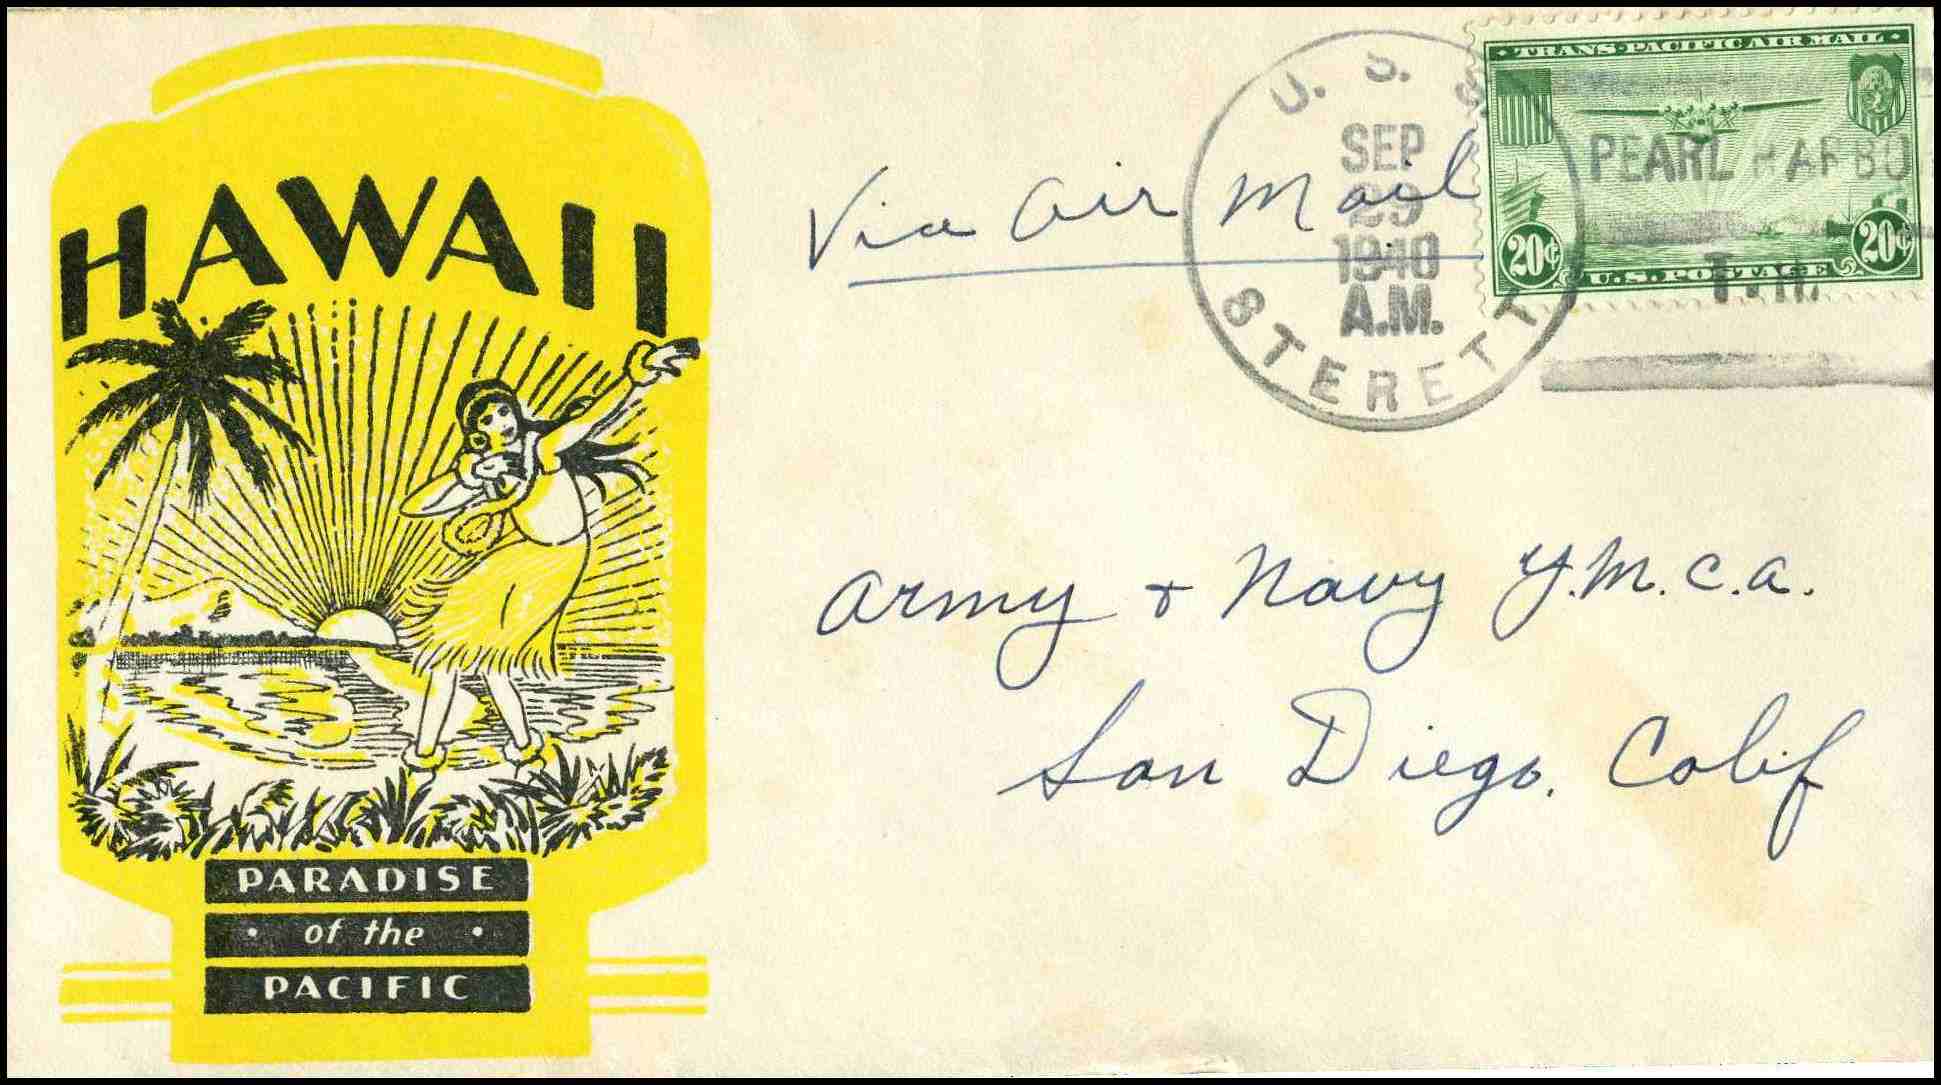 HAWAII
PARADISE
• of the •
PACIFIC
Via Air Mail
U. S. S.
STERETT
SEP
29
1940
A.M.
PEARL HARBOR
T.H.
• TRANS-PACIFIC AIR MAIL •
20¢ 20¢
U.S. POSTAGE
Army + Navy Y.M.C.A.
San Diego, Calif